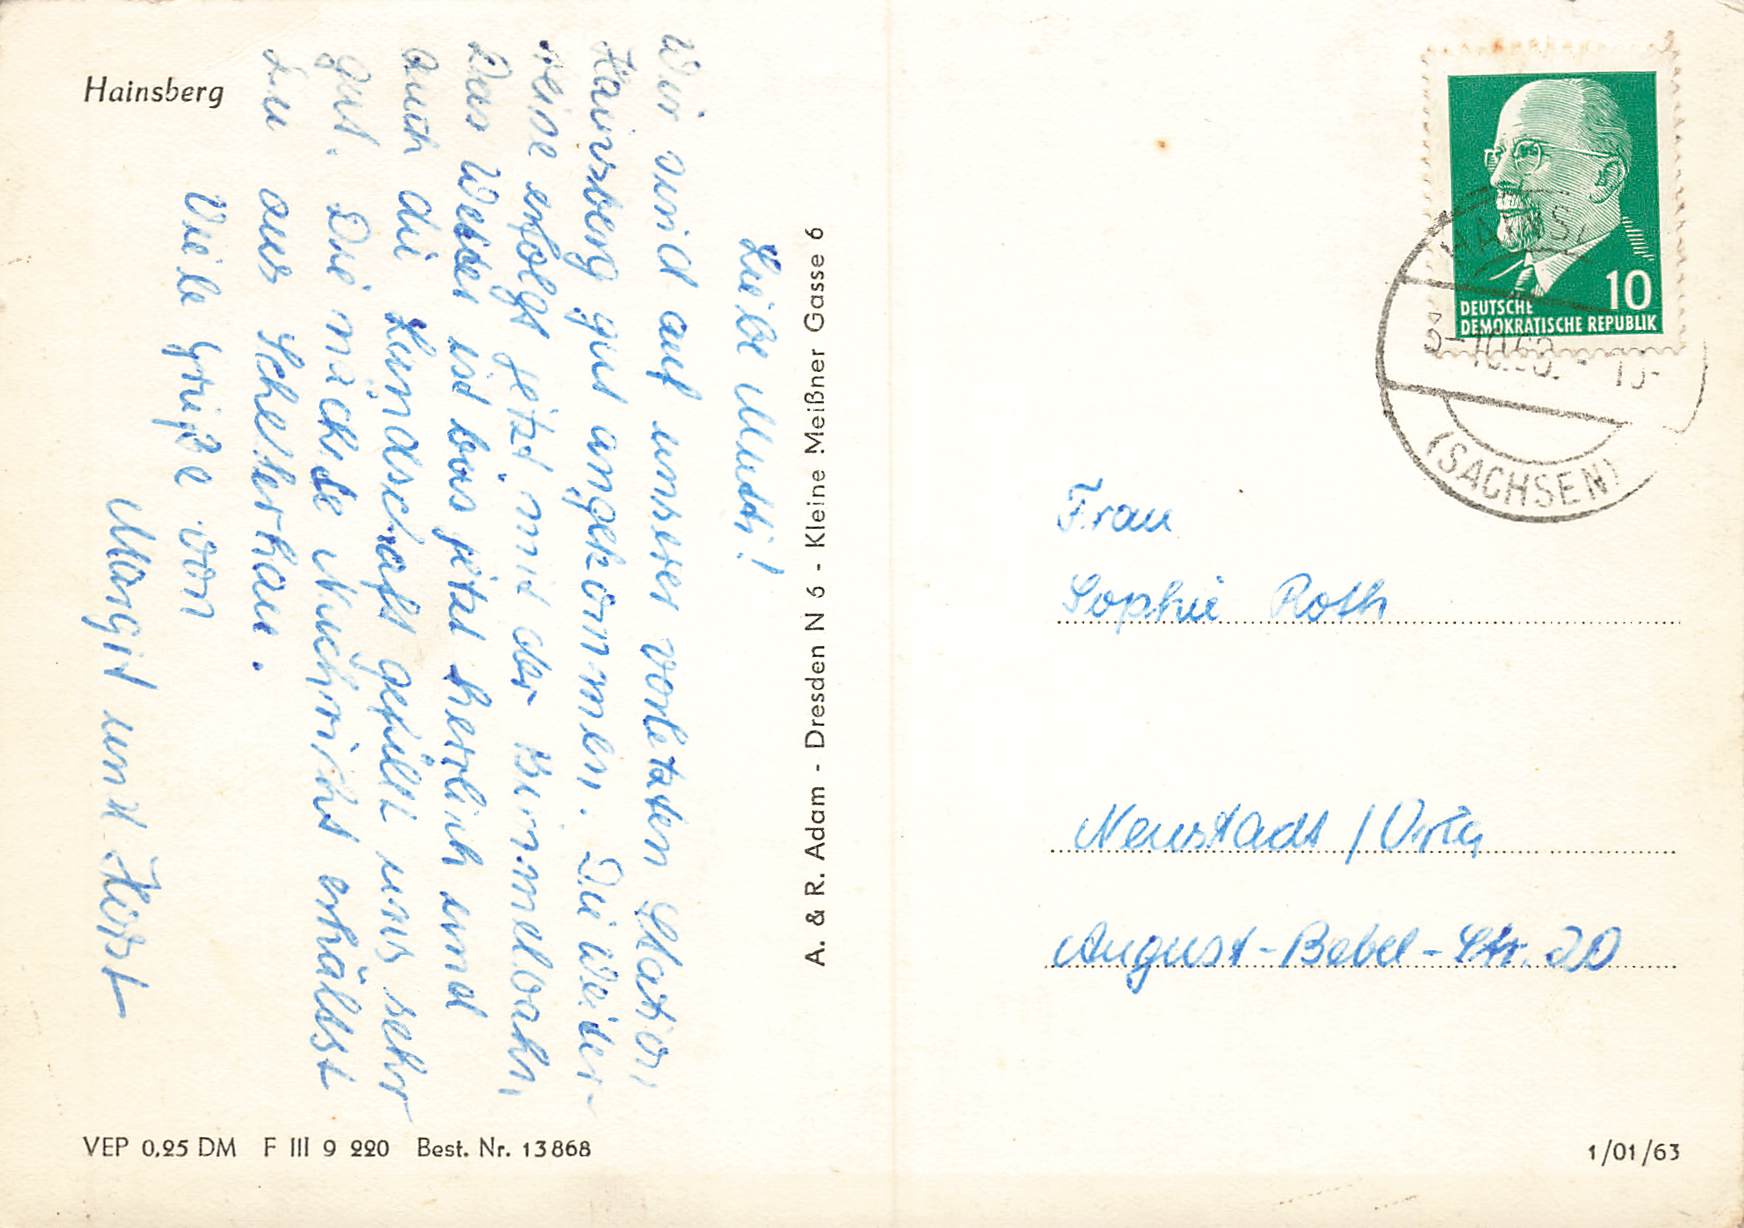 Hainsberg
Liebe Mutti!
Wir sind auf unserer vorletzten Station
Hainsberg gut angekommen. Die Weiter-
reise erfolgt jetzt mit der Bimmelbahn
Das Wetter ist bis jetzt herrlich und
auch die Landschaft gefällt uns sehr
gut. Die nächste Nachricht erhältst
Du aus Schellerhau.
Viele Grüße von
Margit und Horst
A. & R. Adam - Dresden N 6 - Kleine Meißner Gasse 6
VEP 0,25 DM F III 9 220 Best. Nr. 13868
10
DEUTSCHE
DEMOKRATISCHE REPUBLIK
HAINS
(SACHSEN)
Frau
Sophie Roth
Neustadt / Orla
August-Bebel-Str. 20
1/01/63